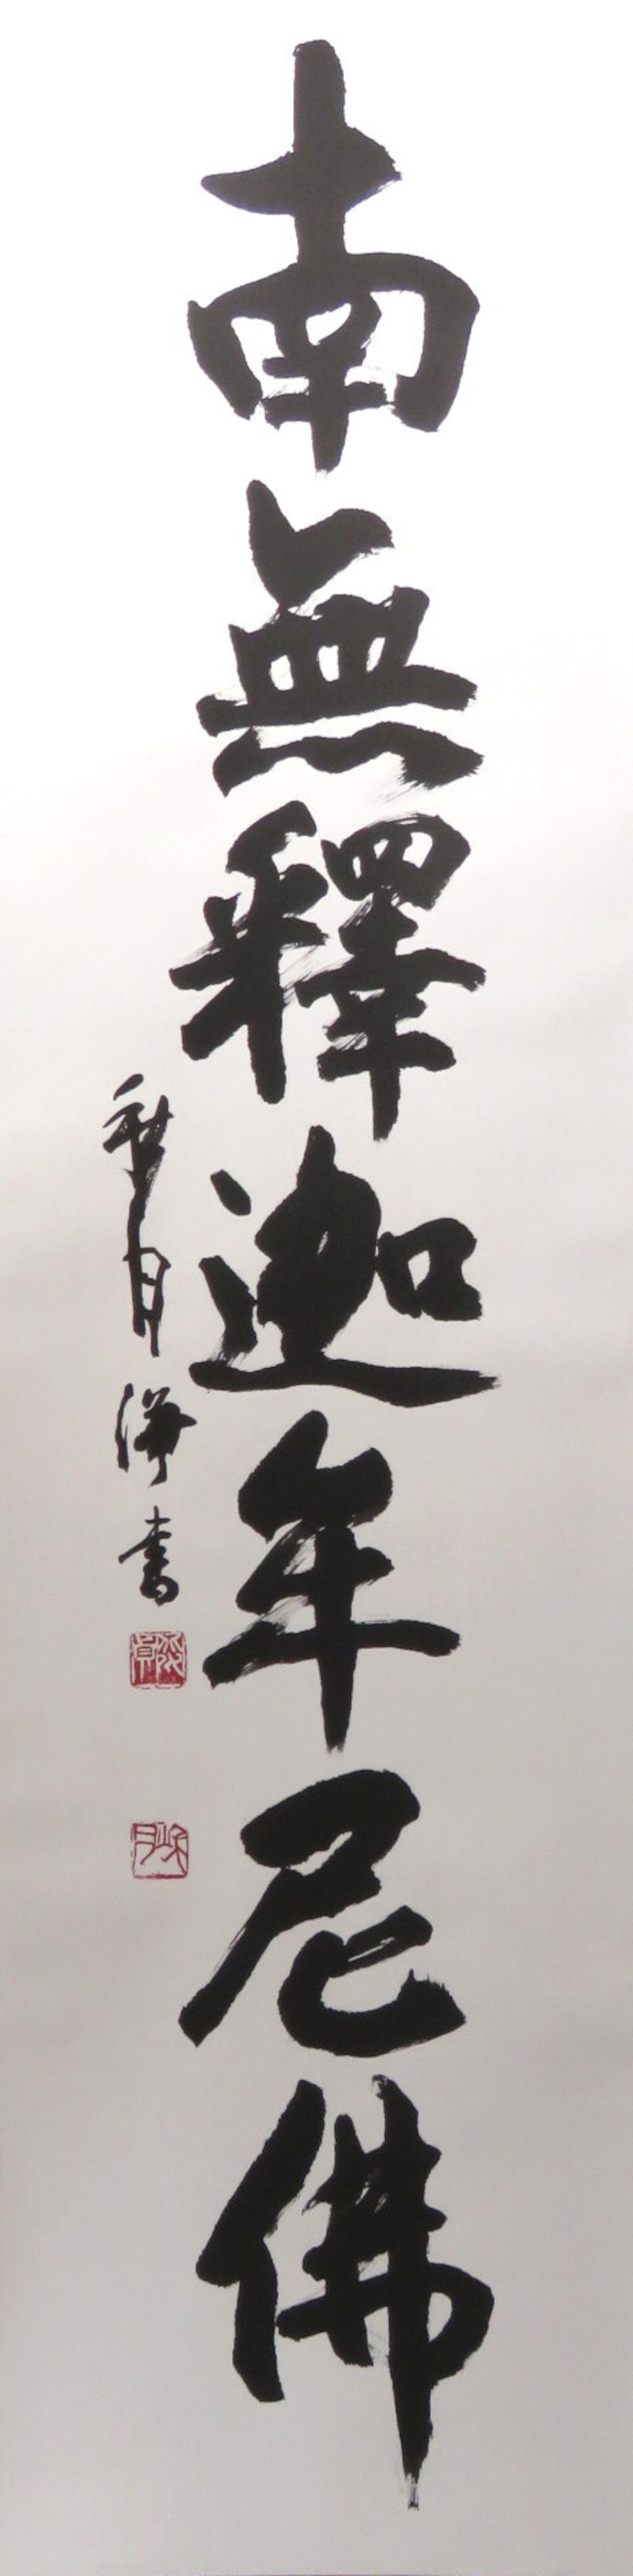 南無釋迦牟尼佛
秋月 書